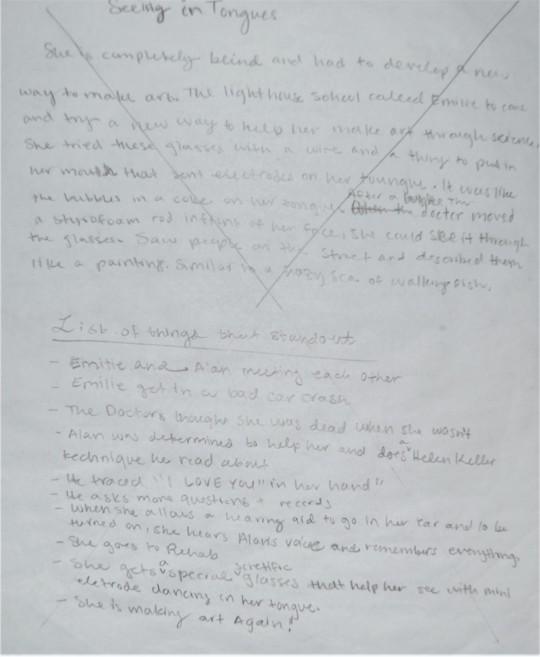 Seeing in Tongues
She is completely blind and had to develop a new
way to make art. The lighthouse school called Emilie to come
and try a new way to help her make art through science.
She tried these glasses with a wire and a thing to put in
her mouth that sent electrodes on her toungue. It was like
the bubbles in a coke on her tongue. After a while the doctor moved
a styrofoam rod infront of her face, she could see it through
the glasses. Saw people on the street and described them
like a painting. Similar to a hazy sea of walking fish.
List of things that standout
- Emilie and Alan meeting each other
- Emilie get in a bad car crash
- The Doctors thought she was dead when she wasn't
- Alan was determined to help her and does a Helen Keller
technique he read about
- He traced "I LOVE YOU" in her hand"
- He asks more questions + records
- When she allows a hearing aid to go in her ear and to be
turned on, she hears Alans voice and remembers everything.
- She goes to Rehab
- She gets a special scietific glasses that help her see with mini
eletrode dancing in her tongue.
- She is making art Again!